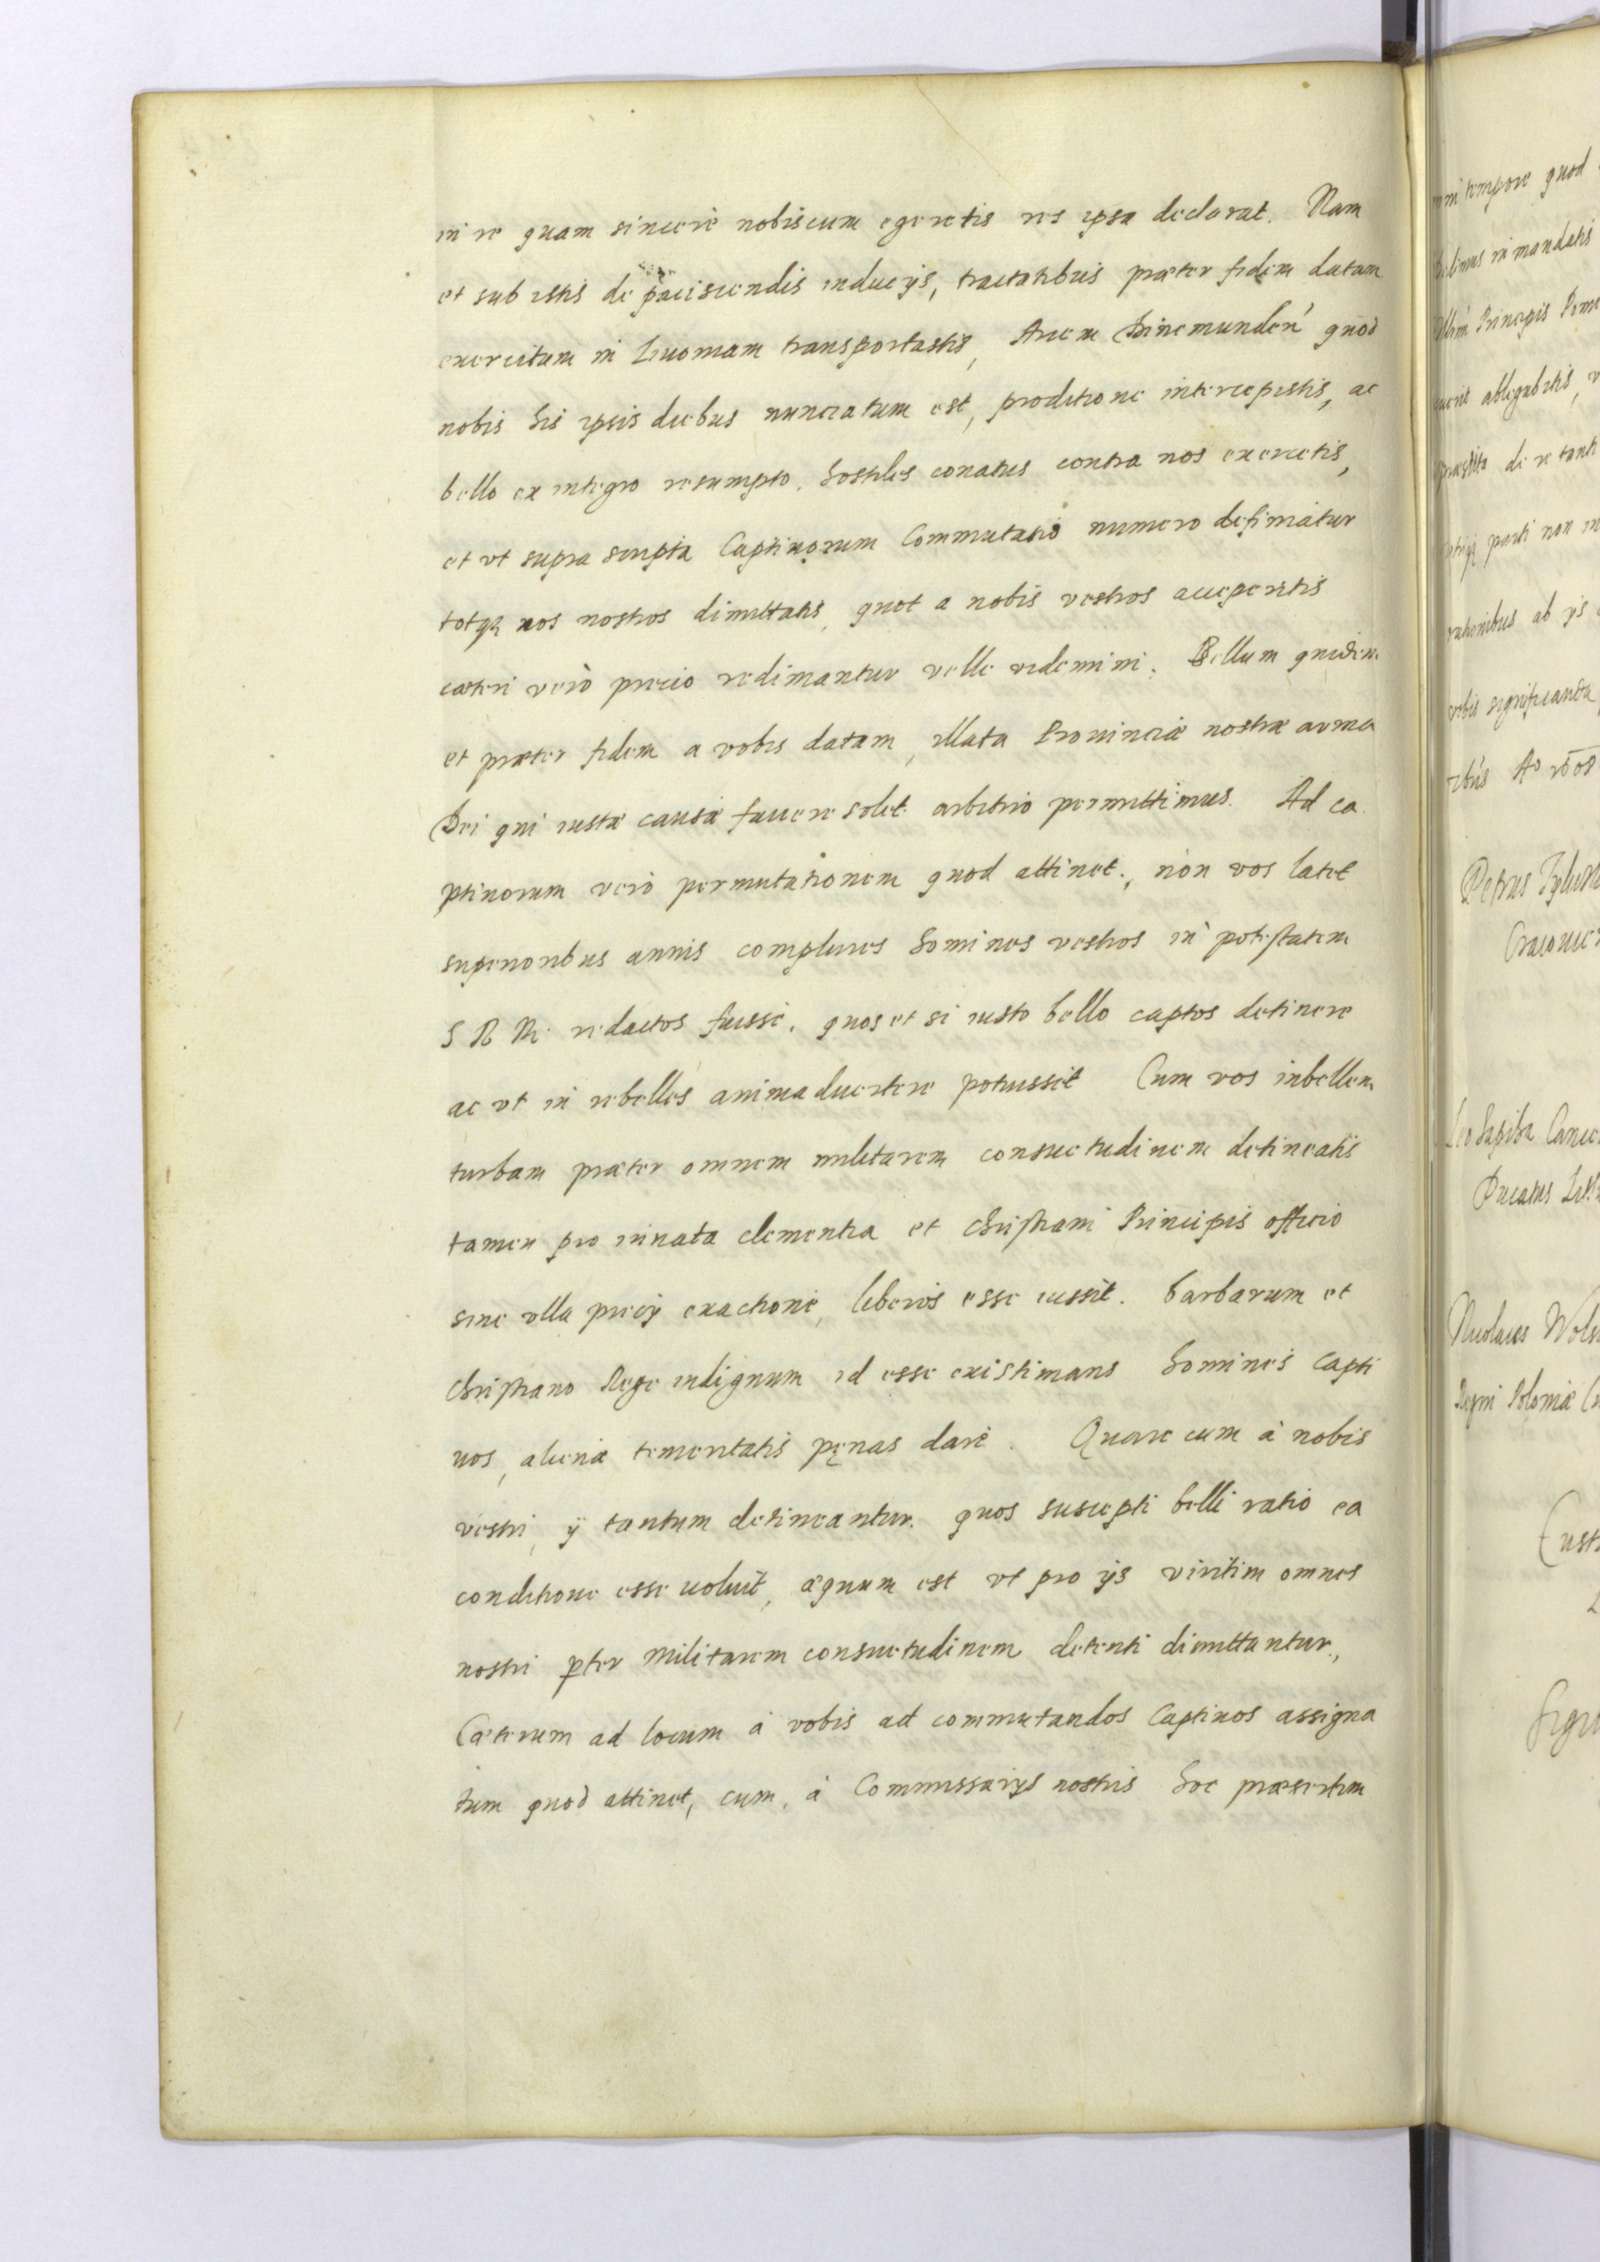 in re quam sincerè nobiscum egeretis res ipsa declarat. Nam
et sub istis de paciscendis inducijs, tractatibus præter fidem datam
exercitum in Liuoniam transportastis, Arcem Dinemunden quod
nobis his ipsis diebus nunciatum est, proditione intercepistis, ac
bello ex integro resumpto, hostiles conatus contra nos exercetis,
et vt supra scripta Captiuorum Commutatio numero definiatur
totq; vos nostros dimittatis, quot a nobis vestros acceperitis
cæteri verò precio redimantur velle videmini. Bellum quidem
et præter fidem a vobis datam, illata Prouinciæ nostræ arma
Dei qui iustæ causæ fauere solet arbitrio permittimus. Ad ca
ptiuorum verò permutationem quod attinet, non vos latet
superioribus annis complures homines vestros in potestatem
S R M redactos fuisse, quos et si iusto bello captos detinere
ac vt in rebelles animaduertere potuisset Cum vos inbellem
turbam præter omnem militarem consuetudinem detineatis
tamen pro innata clementia et christiani Principis officio
sine vlla precij exactione, liberos esse iussit. barbarum et
christiano Rege indignum id esse existimans homines Capti
uos, alienæ temeritatis pęnas dare. Quare cum à nobis
vestri, ij tantum detineantur, quos suscepti belli ratio ea
conditione esse uoluit, æquum est vt pro ijs viritim omnes
nostri pter militarem consuetudinem detenti dimittantur,
Cæterum ad locum à vobis ad commutandos Captiuos assigna
tum quod attinet, cum, à Commissarijs nostris hoc præsertim

tempore quod
in mandatis
Principis Pome
ablegabitis,
de re tanti
parti non in
ab ijs
vobis significanda
Petrus Tylicki
Leo Sapiha Cance
Ducatus
Nicolaus Wols
Regni Poloniæ